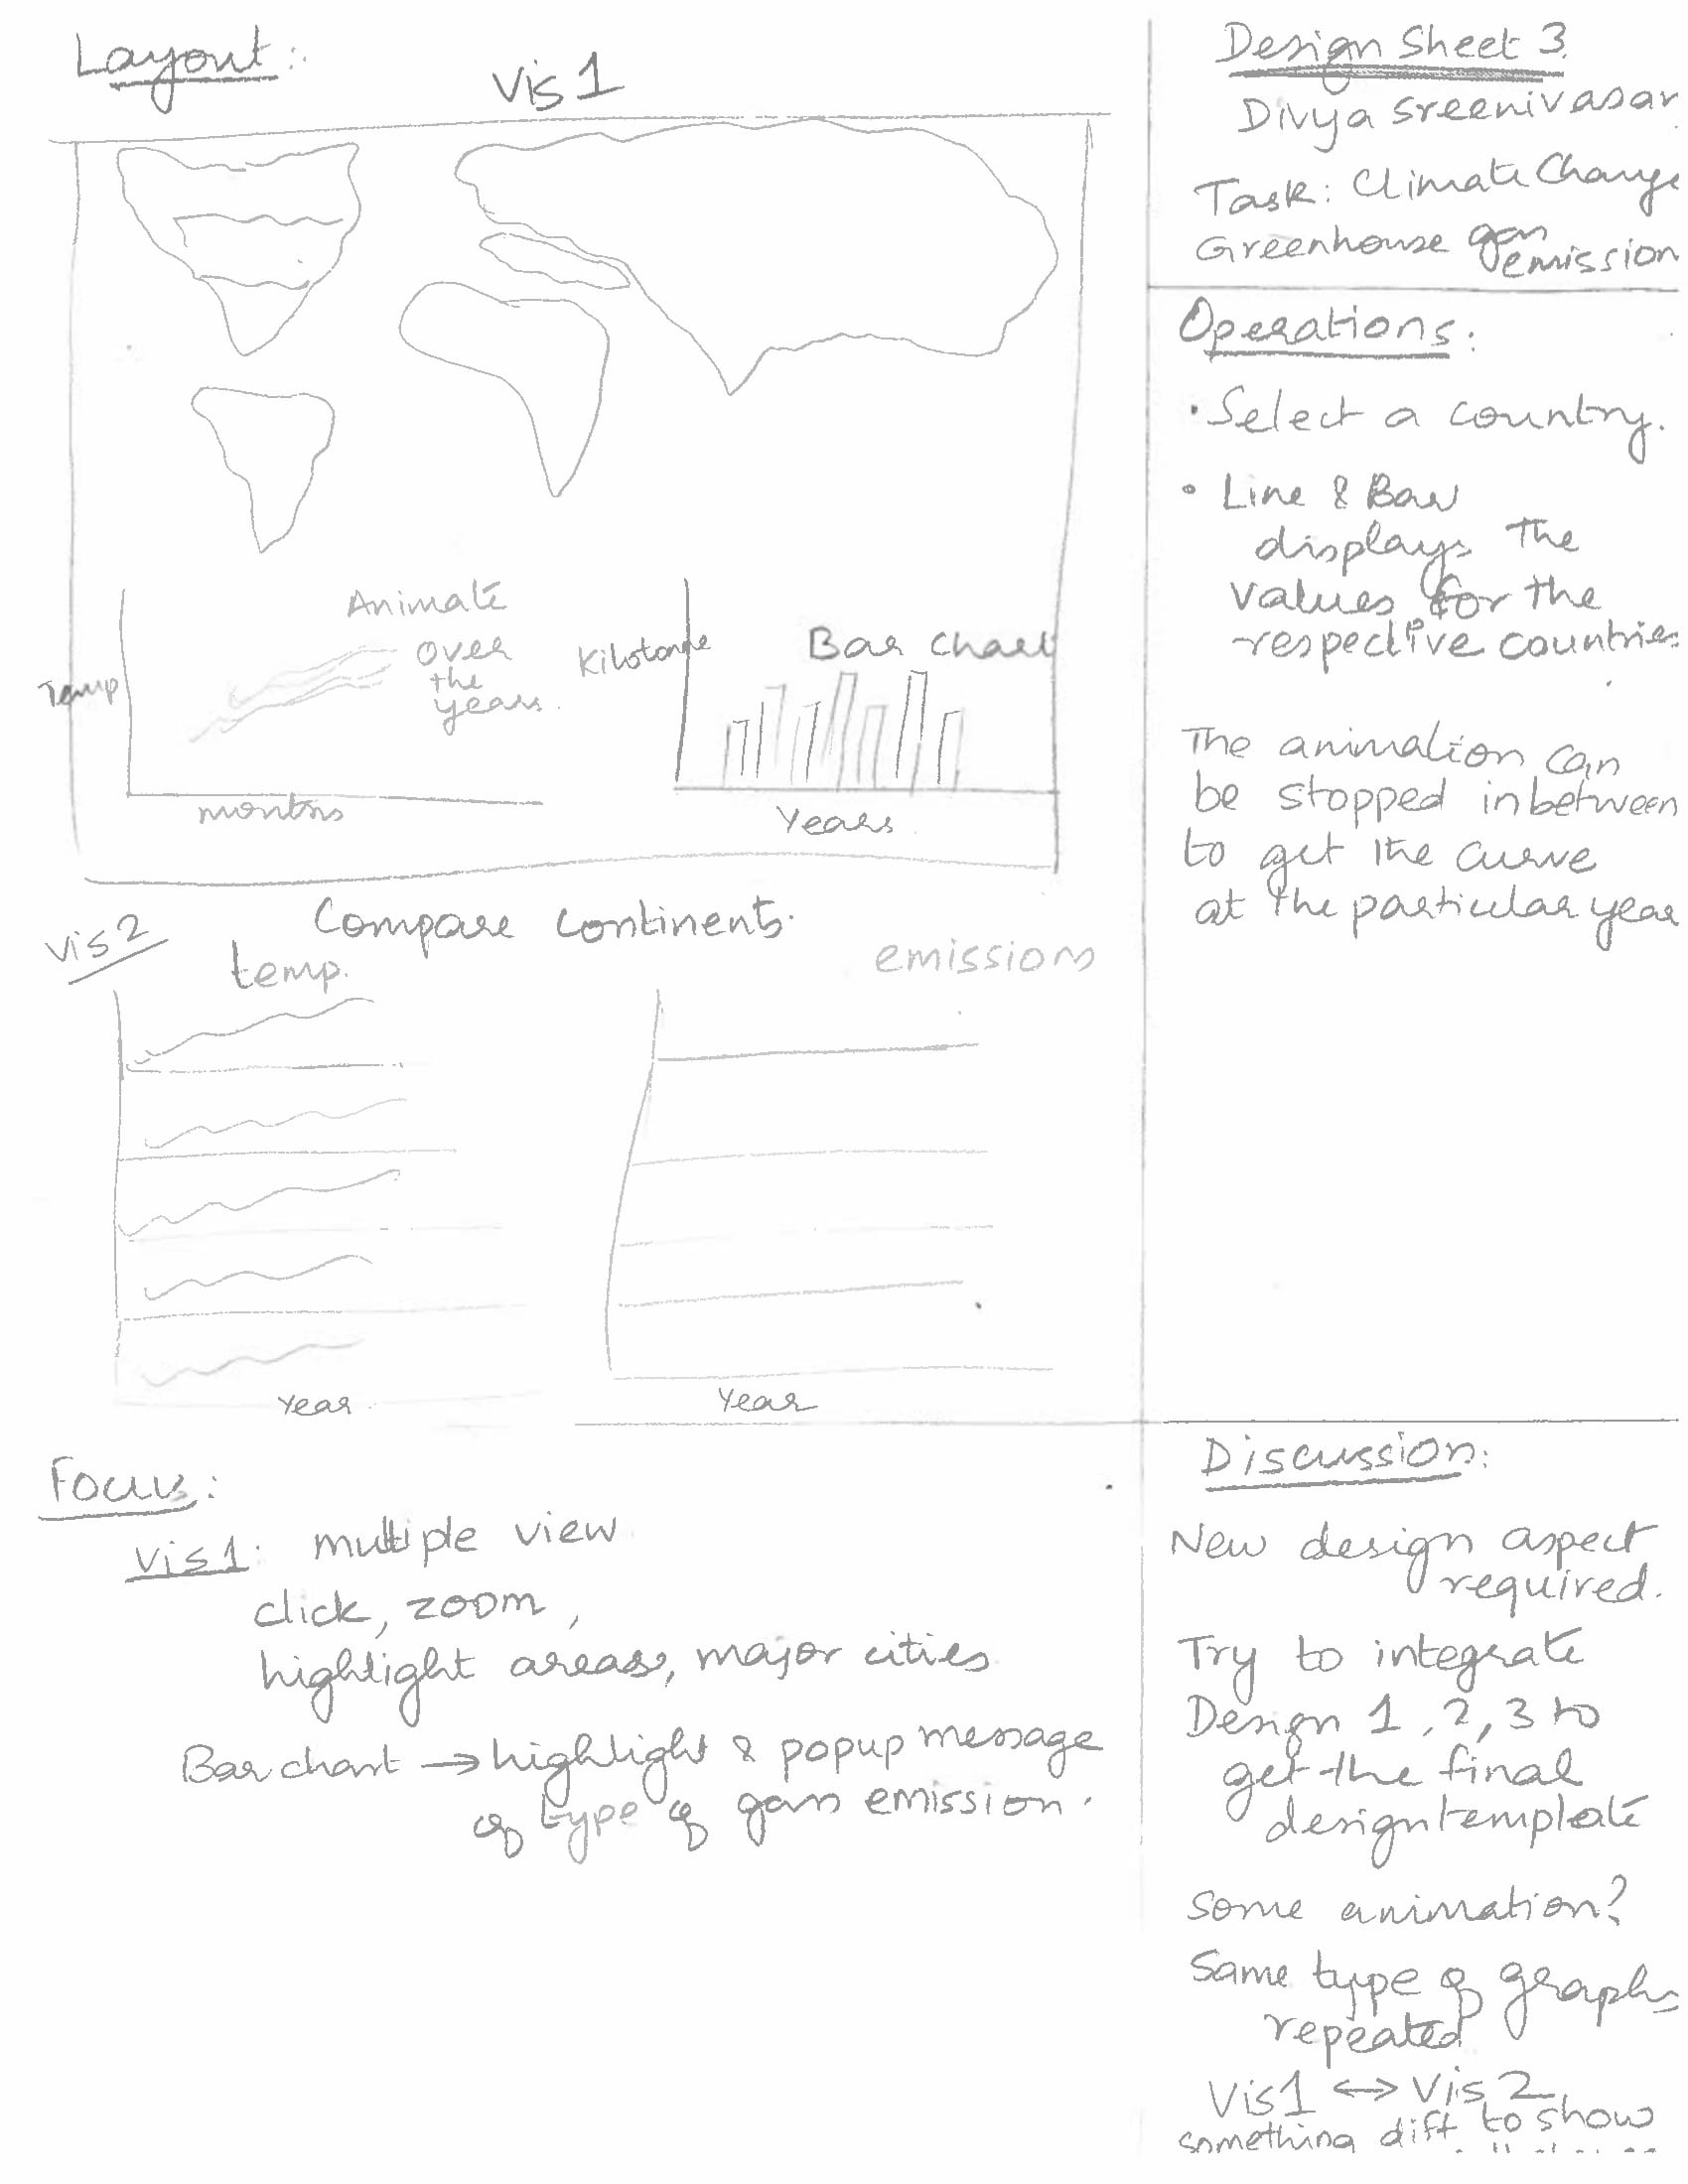 Layout:
Vis 1
Animate
over
the
years.
Temp
months
Kilotonne
Bar chart
Years
Vis 2
Compare continents.
temp.
emissions
Year
Year
Focus:
Vis 1: multiple view
click, zoom,
highlight areas, major cities
Bar chart → highlight & popup message
of type of gas emission.
Design Sheet 3
Divya Sreenivasan
Task: Climate Change
Greenhouse gas
emission
Operations:
• Select a country.
• Line & Bar
displays the
values for the
respective countries
The animation can
be stopped inbetween
to get the curve
at the particular year
Discussion:
New design aspect
required.
Try to integrate
Design 1, 2, 3 to
get the final
design template
Some animation?
Same type of graphs
repeated
Vis 1 ↔ Vis 2
something dift to show